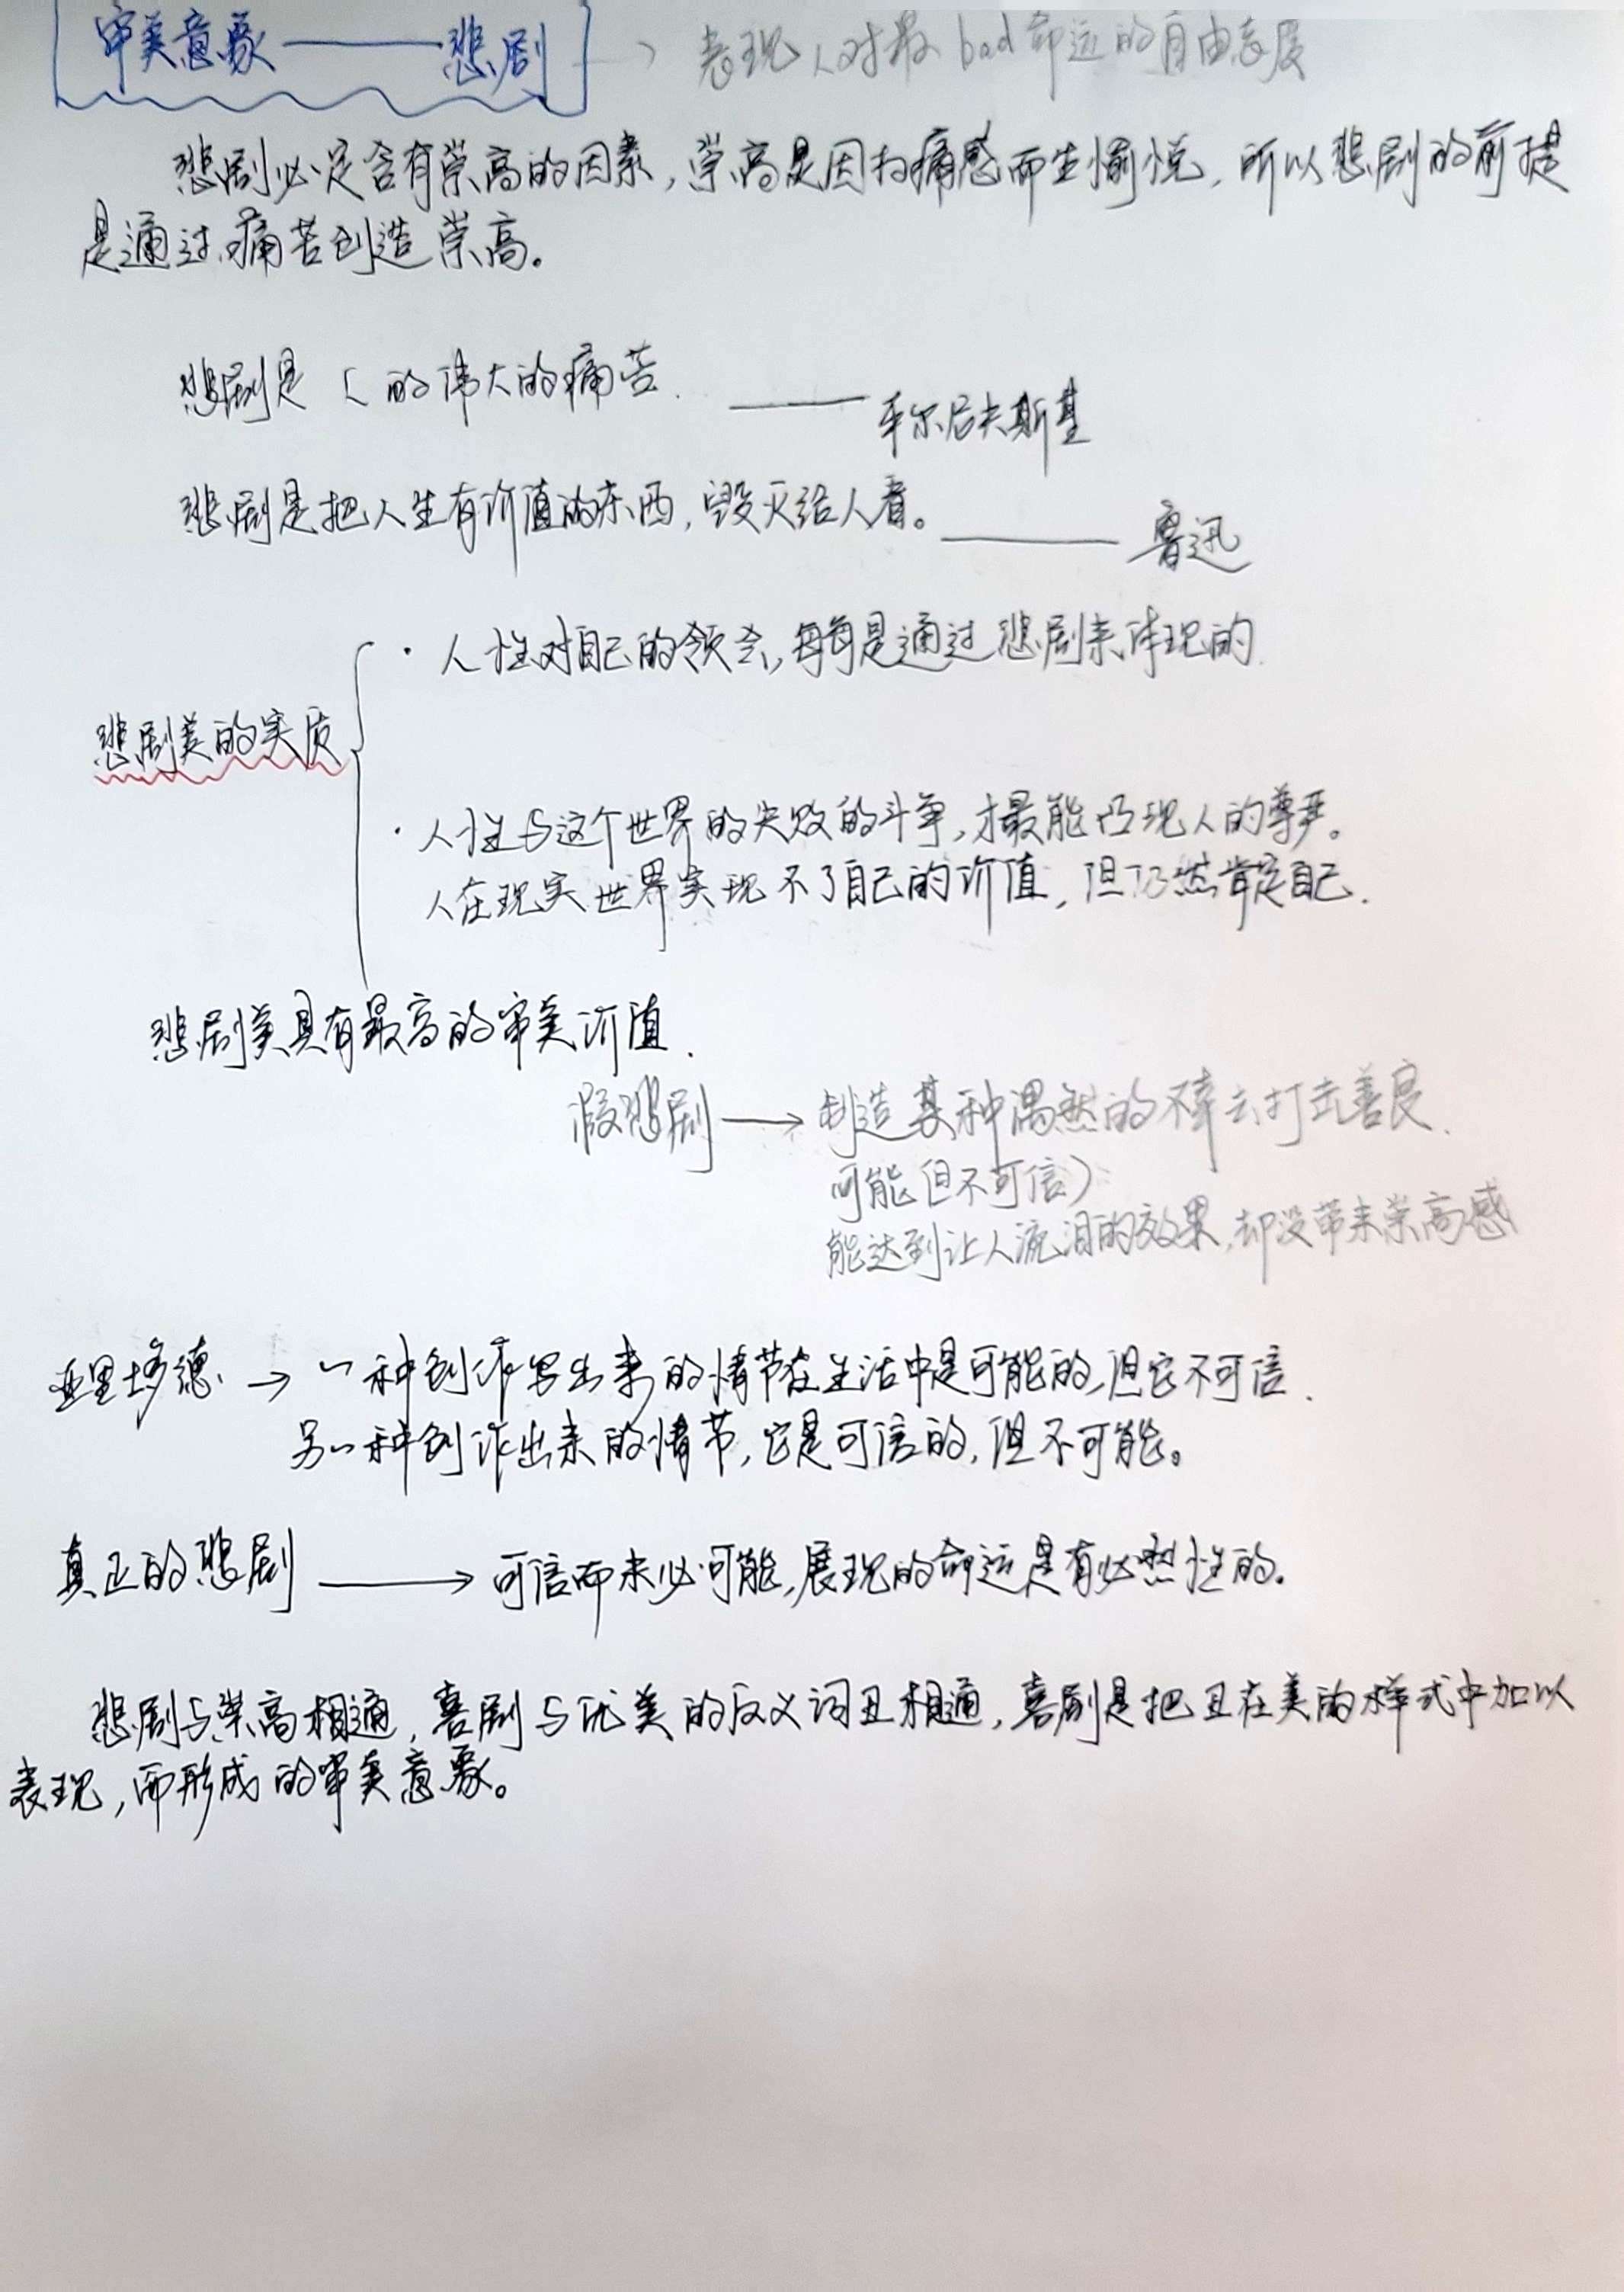 审美意象——悲剧 → 表现人对最bad命运的自由态度
悲剧必定含有崇高的因素,崇高是因为痛感而生愉悦,所以悲剧的前提
是通过痛苦创造崇高。
悲剧是人的伟大的痛苦.
——车尔尼夫斯基
悲剧是把人生有价值的东西,毁灭给人看。
——鲁迅
· 人性对自己的领会,每每是通过悲剧来体现的.
悲剧美的实质
· 人性与这个世界的失败的斗争,才最能凸现人的尊严。
人在现实世界实现不了自己的价值,但仍然肯定自己.
悲剧美具有最高的审美价值.
假悲剧 → 制造某种偶然的不幸去打击善良.
可能但不可信)
能达到让人流泪的效果,却没带来崇高感
亚里士多德. → 一种创作写出来的情节在生活中是可能的,但它不可信.
另一种创作出来的情节,它是可信的,但不可能。
真正的悲剧 → 可信而未必可能,展现的命运是有必然性的。
悲剧与崇高相通,喜剧与优美的反义词丑相通,喜剧是把丑在美的样式中加以
表现,而形成的审美意象。